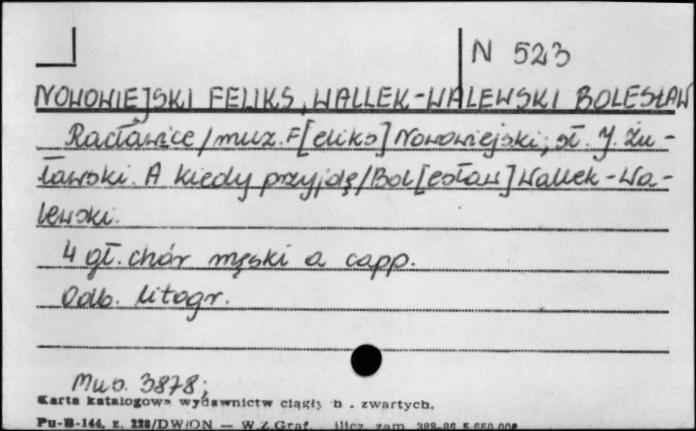 N 523
NOWOWIEJSKI FELIKS, WALLEK-WALEWSKI BOLESŁAW
Racławice / muz. F[eliks] Nowowiejski; sł. J. Żu-
ławski. A kiedy przyjdę / Bol[esław] Wallek-Wa-
lewski.
4 gł. chór męski a capp.
Odb. litogr.
Mus. 3878;
Karta katalogowa wydawnictw ciągłych . zwartych.
Pu-B-144, z. 228/DW/ON — W.Z.Graf. zam.